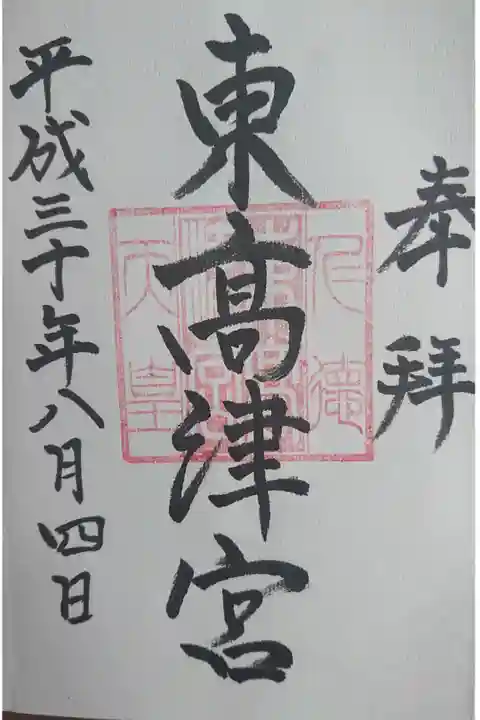 奉拝
東高津宮
仁徳
天皇
平成三十年八月四日